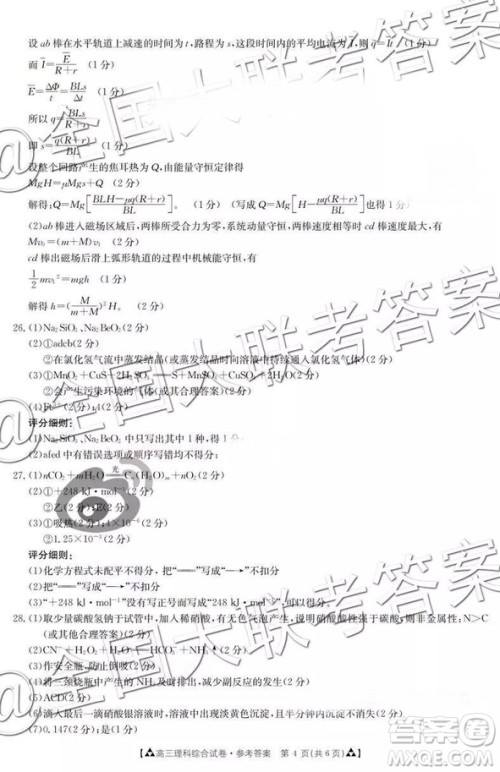 设ab棒在水平轨道上减速的时间为t,路程为s,这段时间内的平均电流为I̅,则q=I̅t (1分)
而I̅=E̅/(R+r) (1分)
E̅=ΔΦ/Δt=BLs/Δt (1分)
所以q=BLs/(R+r)
即s=q(R+r)/BL (1分)
设整个回路产生的焦耳热为Q,由能量守恒定律得
MgH=μMgs+Q (2分)
解得:Q=Mg[(BLH-μq(R+r))/BL]。 (1分) (写成Q=Mg[H-μq(R+r)/BL]也得1分)
(2)ab棒进入磁场区域后,两棒所受合力为零,系统动量守恒,两棒速度相等时cd棒速度最大,有
Mv₀=(m+M)v₁ (1分)
cd棒出磁场后滑上弧形轨道的过程中机械能守恒,有
1/2mv₁²=mgh (1分)
解得h=(M/(m+M))²H。 (2分)
26.(1)Na₂SiO₃、Na₂BeO₂(2分)
(2)①adcb(2分)
②在氯化氢气流中蒸发结晶(或蒸发结晶时向溶液中持续通入氯化氢气体)(2分)
(3)①MnO₂+CuS+2H₂SO₄══S+MnSO₄+CuSO₄+2H₂O(2分)
②会产生污染环境的气体(或其他合理答案)(2分)
(2分);4(2分)
评分细则:
(1)Na₂SiO₃、Na₂BeO₂中只写出其中1种,得1分。
(2)afed中有错误选项或顺序写错均不得分。
27.(1)nCO₂+mH₂O
(2分)
(2)①+248 kJ·mol⁻¹(2分)
②乙(2分);E(2分)
(3)①吸热(2分);4×10⁻⁴(2分)
②1.25×10⁻⁵(2分)
评分细则:
(1)化学方程式未配平不得分,把“══”写成“→”不得分。
(2)把“══”写成“→”不得分。
(3)“+248 kJ·mol⁻¹”没有写正号而写成“248 kJ·mol⁻¹”不得分。
28.(1)取少量碳酸氢钠于试管中,加入稀硝酸,有无色气泡产生,说明硝酸酸性强于碳酸,非金属性:N>C
(或其他合理答案)(2分)
(2)CN⁻+H₂O₂+H₂O══HCO₃⁻+NH₃(2分)
(3)作安全瓶,防止倒吸(2分)
(4)将三颈烧瓶中产生的NH₃及时排出,减少副反应的发生(2分)
(5)ACD(2分)
(6)滴入最后一滴硝酸银溶液,溶液恰好由无色变为淡黄色沉淀,且半分钟内淡黄色沉淀不消失(2分)
(7)0.147(2分);是(1分)
高三理科综合试卷·参考答案 第4页(共6页)
@全国大联考答案